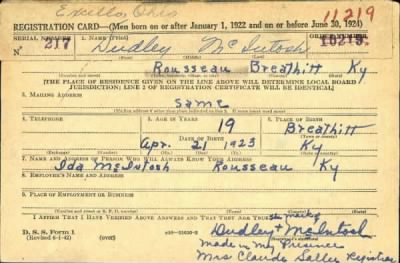 Ohio 11219
REGISTRATION CARD—(Men born on or after January 1, 1922 and on or before June 30, 1924)
SERIAL NUMBER 1. NAME (Print) ORDER NUMBER
N 217 Dudley McIntosh 10219.
Rousseau Breathitt Ky
[THE PLACE OF RESIDENCE GIVEN ON THE LINE ABOVE WILL DETERMINE LOCAL BOARD
JURISDICTION; LINE 2 OF REGISTRATION CERTIFICATE WILL BE IDENTICAL]
3. MAILING ADDRESS
Same
4. TELEPHONE 5. AGE IN YEARS 6. PLACE OF BIRTH
19 Breathitt
DATE OF BIRTH
Apr. 21 1923 Ky
7. NAME AND ADDRESS OF PERSON WHO WILL ALWAYS KNOW YOUR ADDRESS
Ida McIntosh Rousseau Ky
8. EMPLOYER'S NAME AND ADDRESS
9. PLACE OF EMPLOYMENT OR BUSINESS
I AFFIRM THAT I HAVE VERIFIED ABOVE ANSWERS AND THAT THEY ARE TRUE.
mark of
D. S. S. Form 1 Dudley + McIntosh
(Revised 6-1-42) made in my Presence
Mrs Claude Registrar